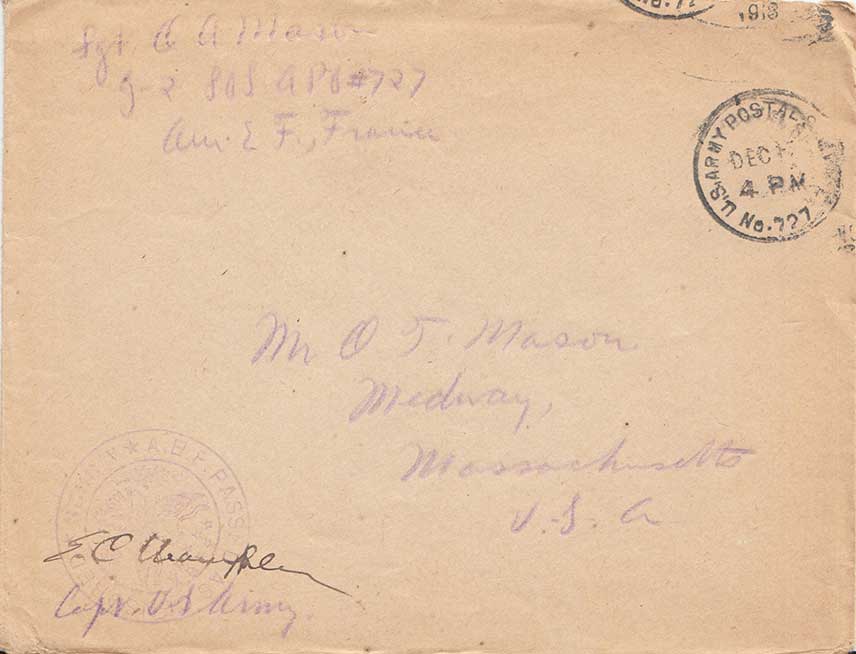 Sgt. C A Mason
G-2 SOS APO #727
Am. E. F., France
1918
U.S. ARMY POSTAL
DEC
4 PM
No. 727
Mr O. T. Mason
Medway,
Massachusetts
U.S.A
A.E.F. PASSED
E C
Capt. U S Army.